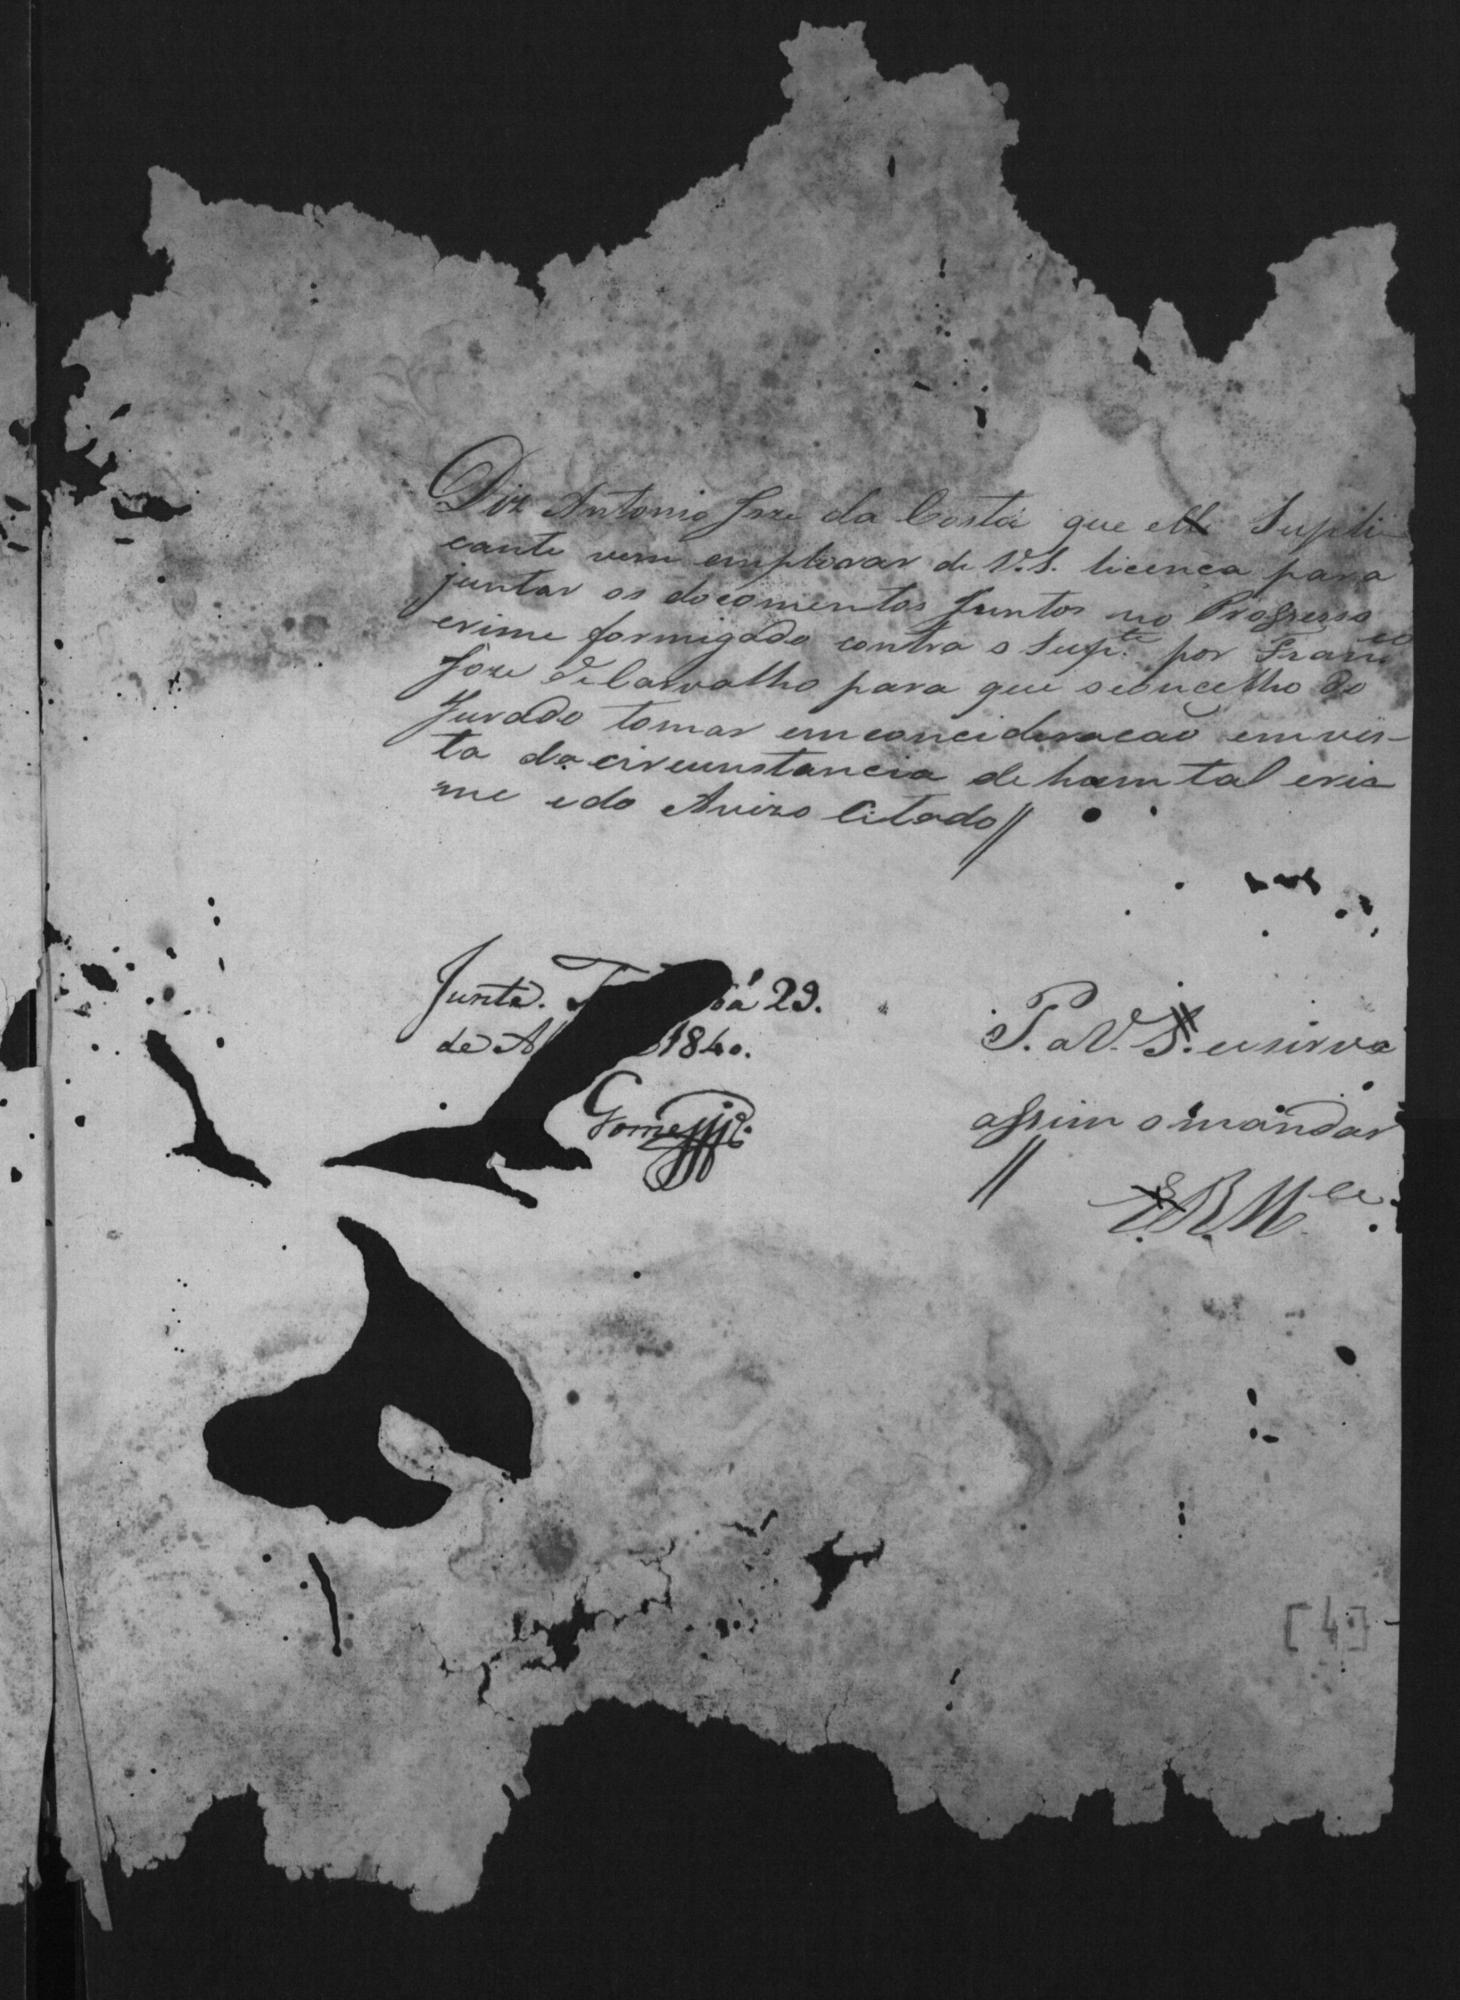 Diz Antonio Joze da Costa que elle Supli
cante vem emplorar de V.S. licença para
juntar os docomentos juntos no Progresso
crime formigado contra o Supte. por Franco
Joze de Carvalho para que o concelho do
Jurado tomar em concideração em vis-
ta da circunstancia de hum tal cri
me e do Avizo Citado //
Junte. 29.
de 1840.
Gomes
P. a V. S. se sirva
assim o mandar
//
E.R.Mce
[4]